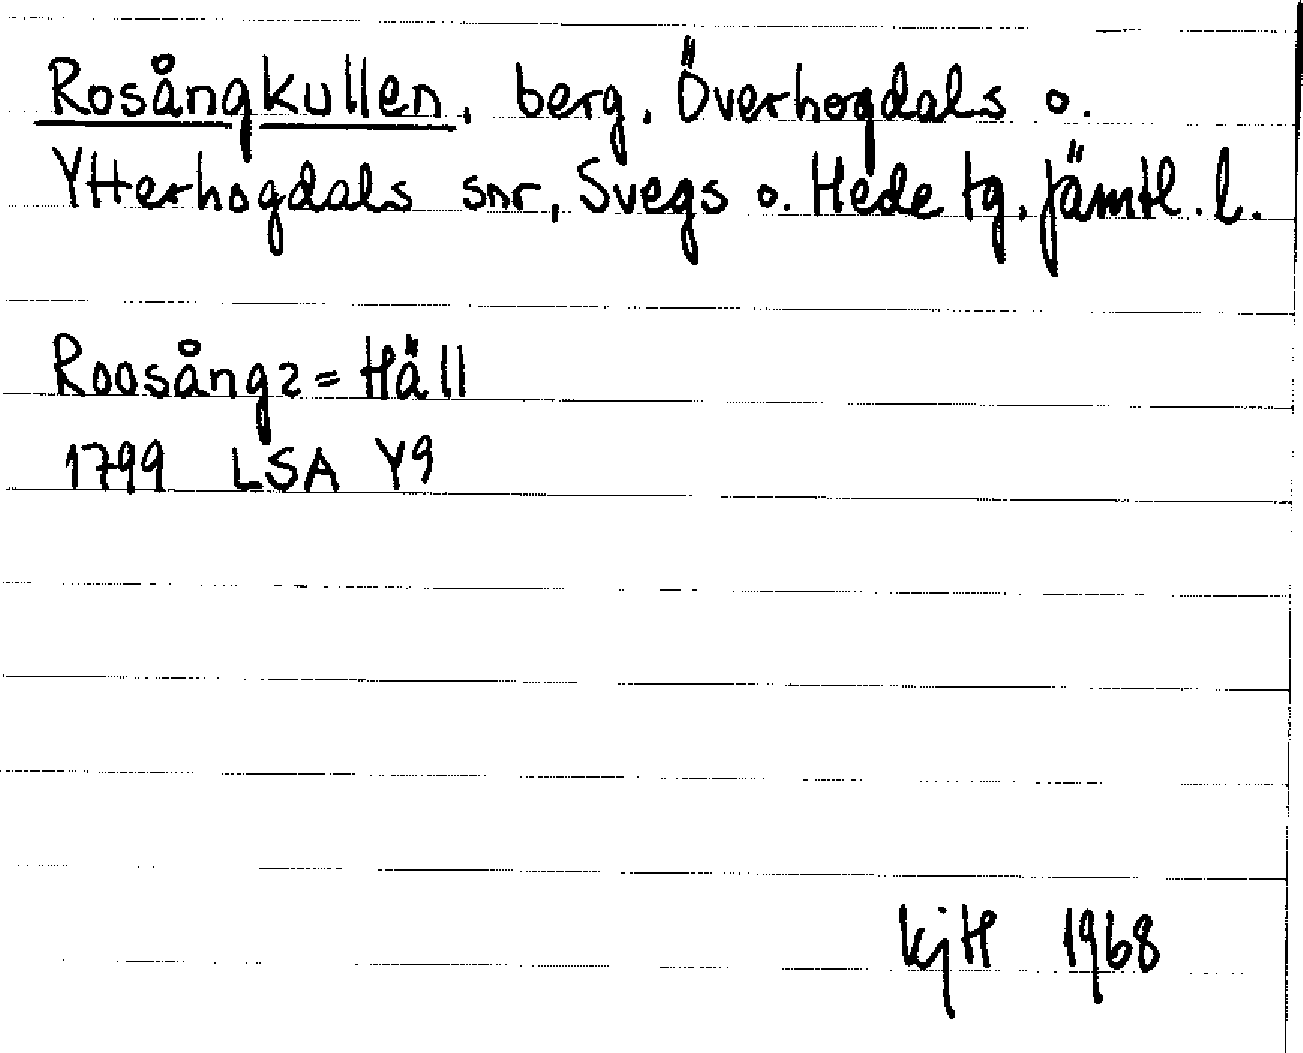 Rosångkullen, berg, Överhogdals o.
Ytterhogdals snr, Svegs o. Hede tg, Jämtl. l.
Roosångz = Häll
1799 LSA Y9
KjH 1968